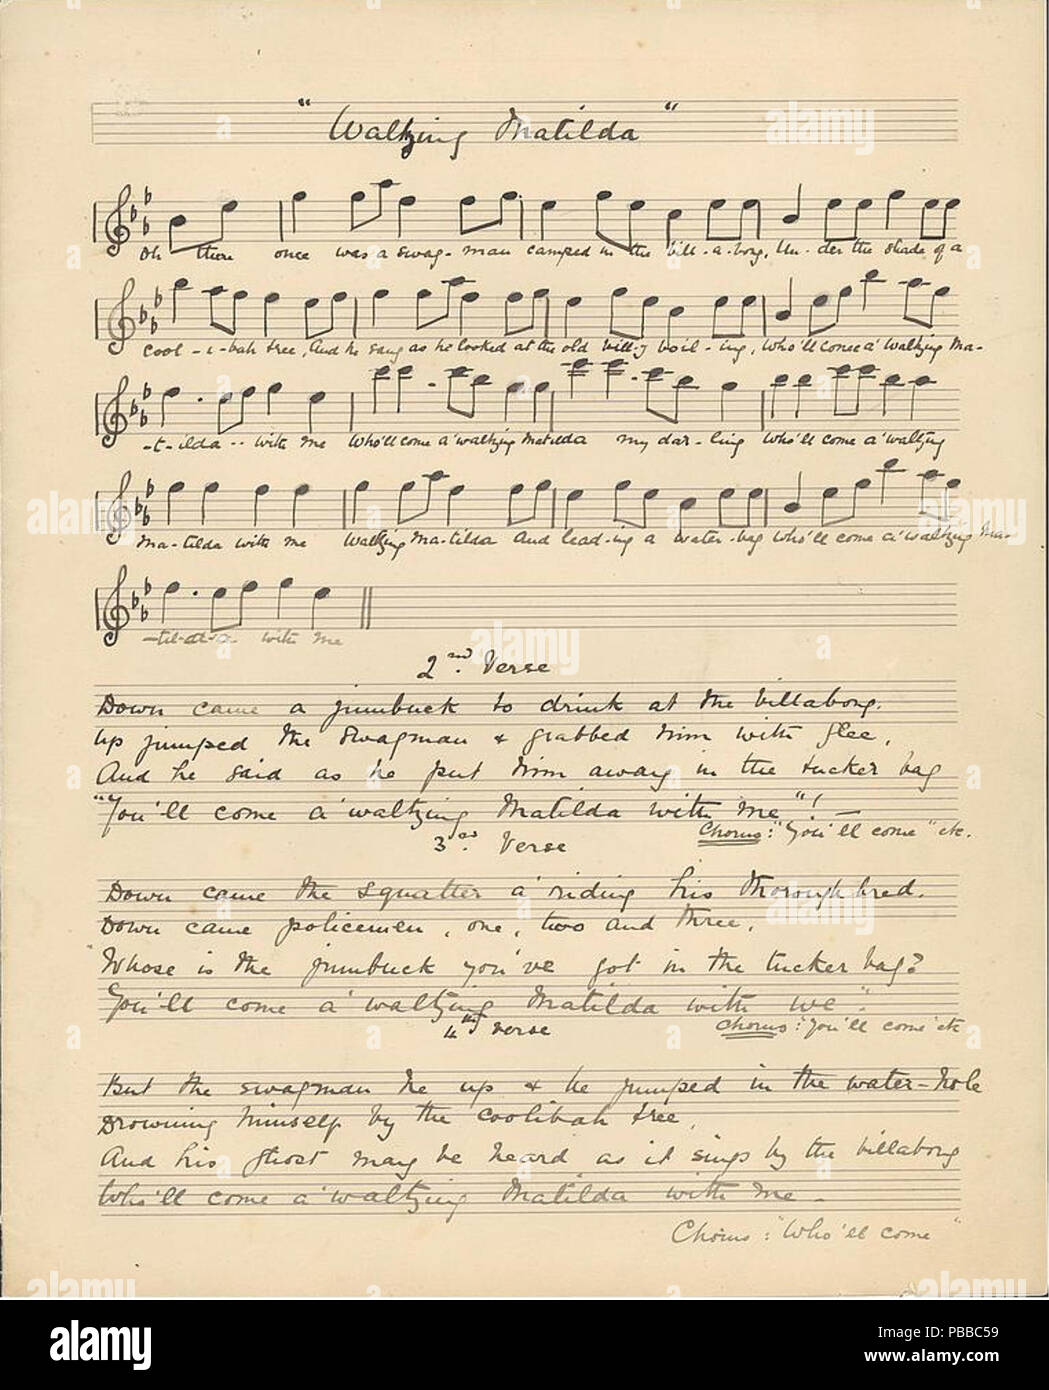 "Waltzing Matilda"
Oh there once was a swag-man camped in the bill-a-bong, Un-der the shade of a
cool-i-bah tree, And he sang as he looked at the old bill-y boil-ing, Who'll come a' waltzing Ma-
-t-ilda -- with me Who'll come a' waltzing Matilda my dar-ling Who'll come a' waltzing
Ma-tilda with me Waltzing Ma-tilda and lead-ing a water-bag Who'll come a' waltzing Ma-
with me
2nd. Verse
Down came a jumbuck to drink at the billabong.
Up jumped the swagman & grabbed him with glee,
And he said as he put him away in the tucker bag
"You'll come a' waltzing Matilda with me"! —
Chorus: "You'll come" etc.
3rd. Verse
Down came the squatter a' riding his thoroughbred.
Down came policemen, one, two and three,
"Whose is the jumbuck you've got in the tucker bag?
You'll come a' waltzing Matilda with we".
Chorus: "You'll come" etc
4th verse
But the swagman he up & he jumped in the water-hole
Drowning himself by the coolibah tree,
And his ghost may be heard as it sings by the billabong
Who'll come a' waltzing Matilda with me -
Chorus: "Who'll come"
alamy
Image ID: PBBC59
www.alamy.com